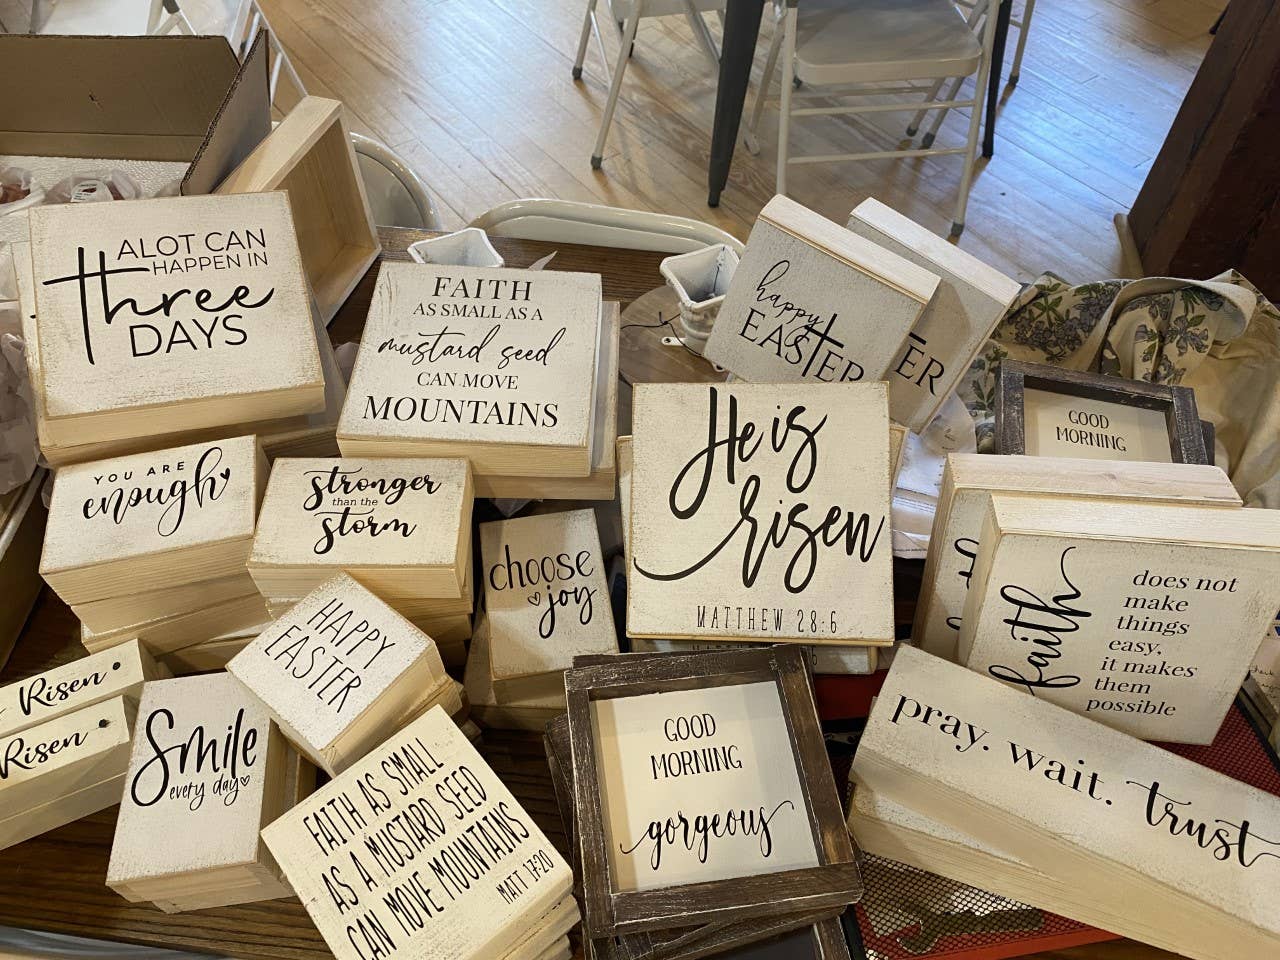 ALOT CAN
HAPPEN IN
three
DAYS
FAITH
AS SMALL AS A
mustard seed
CAN MOVE
MOUNTAINS
happy
EASTER
TER
GOOD
MORNING
YOU ARE
enough
stronger
than the
storm
choose
joy
He is
risen
MATTHEW 28:6
faith
does not
make
things
easy,
it makes
them
possible
HAPPY
EASTER
Risen
Risen
Smile
every day
FAITH AS SMALL
AS A MUSTARD SEED
CAN MOVE MOUNTAINS
MATT 17:20
GOOD
MORNING
gorgeous
pray. wait. trust